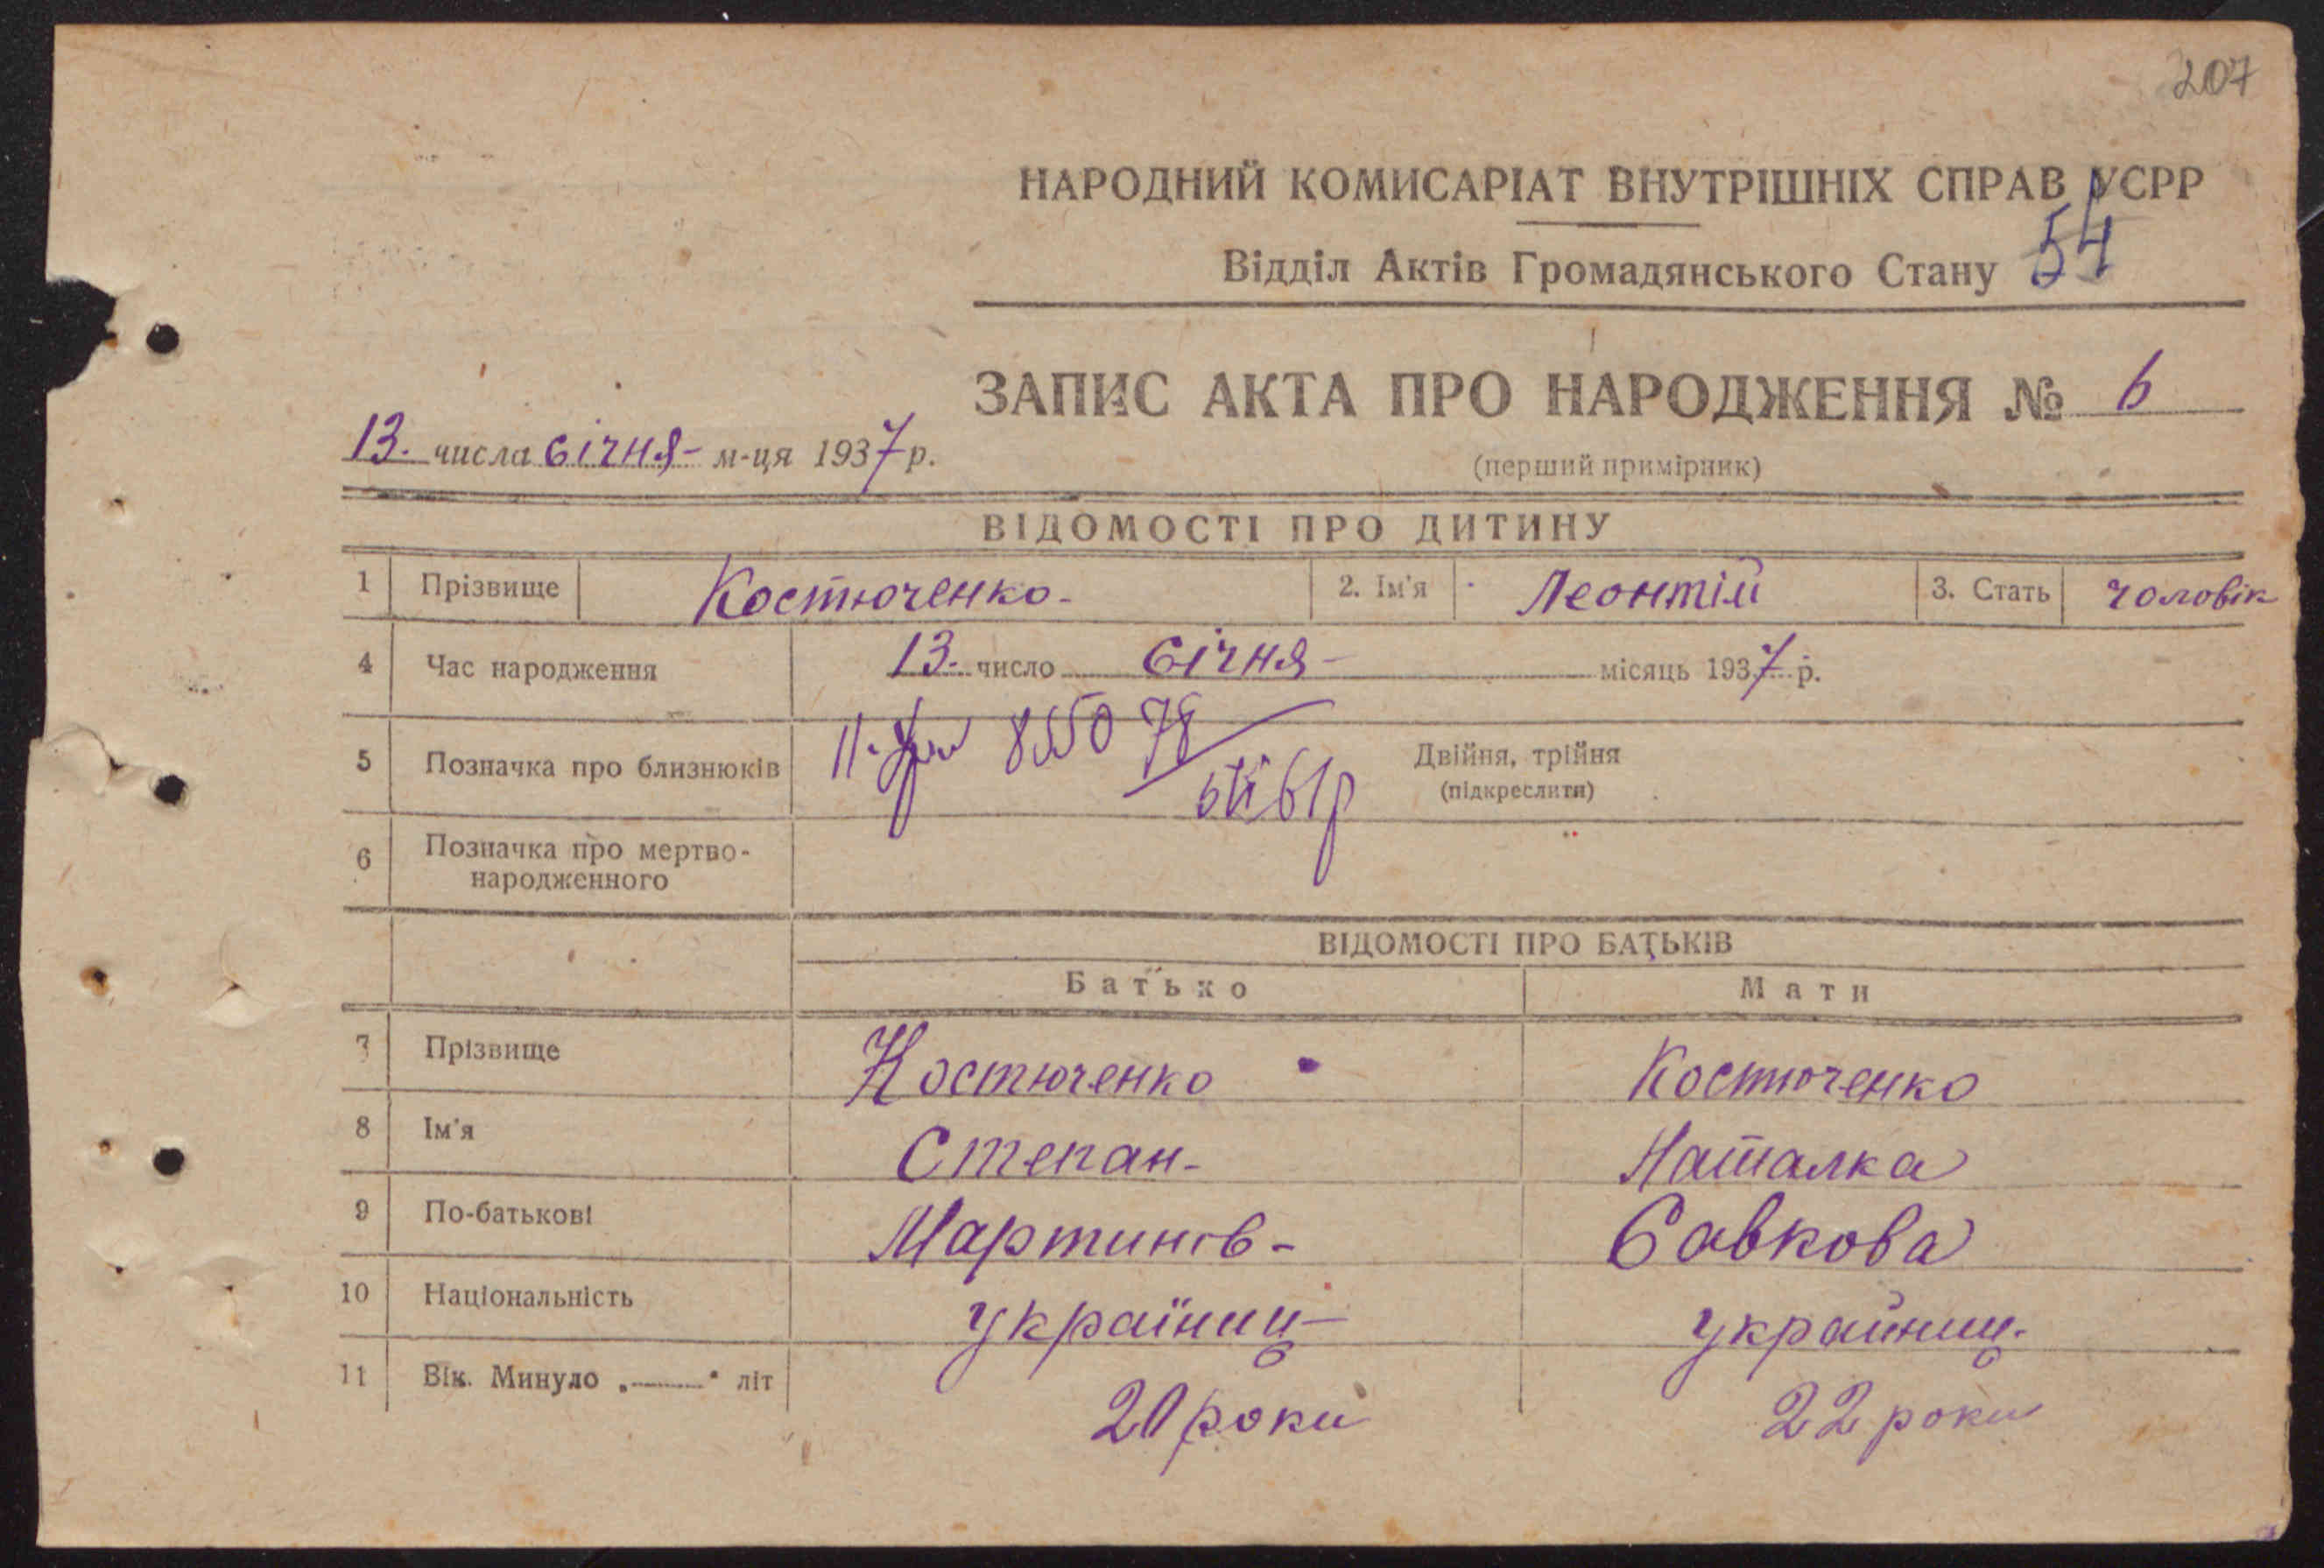 207
НАРОДНИЙ КОМИСАРІАТ ВНУТРІШНІХ СПРАВ УСРР
Відділ Актів Громадянського Стану 54
ЗАПИС АКТА ПРО НАРОДЖЕННЯ № 6
13. числа січня- м-ця 1937 р.
(перший примірник)
ВІДОМОСТІ ПРО ДИТИНУ
1 Прізвище Костюченко- 2. Ім'я Леонтій 3. Стать чоловік
4 Час народження 13. число січня- місяць 1937 р.
5 Позначка про близнюків 8550 78 61р Двійня, трійня
(підкреслити)
6 Позначка про мертво-
народженного
ВІДОМОСТІ ПРО БАТЬКІВ
Батько Мати
7 Прізвище Костюченко Костюченко
8 Ім'я Степан- Наталка
9 По-батькові Мартинів- Савкова
10 Національність українец- українец.
11 Вік. Минуло „ " літ 20 роки 22 роки